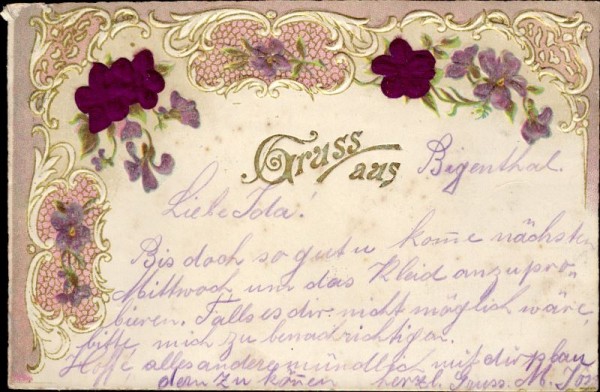 Gruss aus Bigenthal.
Liebe Ida!
Bis doch so gut u kom̄e nächsten
Mittwoch um das Kleid anzupro-
bieren. Falls es dir nicht möglich wäre,
bitte mich zu benachrichtigen.
Hoffe alles andere mündlich mit dir plau
dern zu kön̄en herzl. Gruss. M.